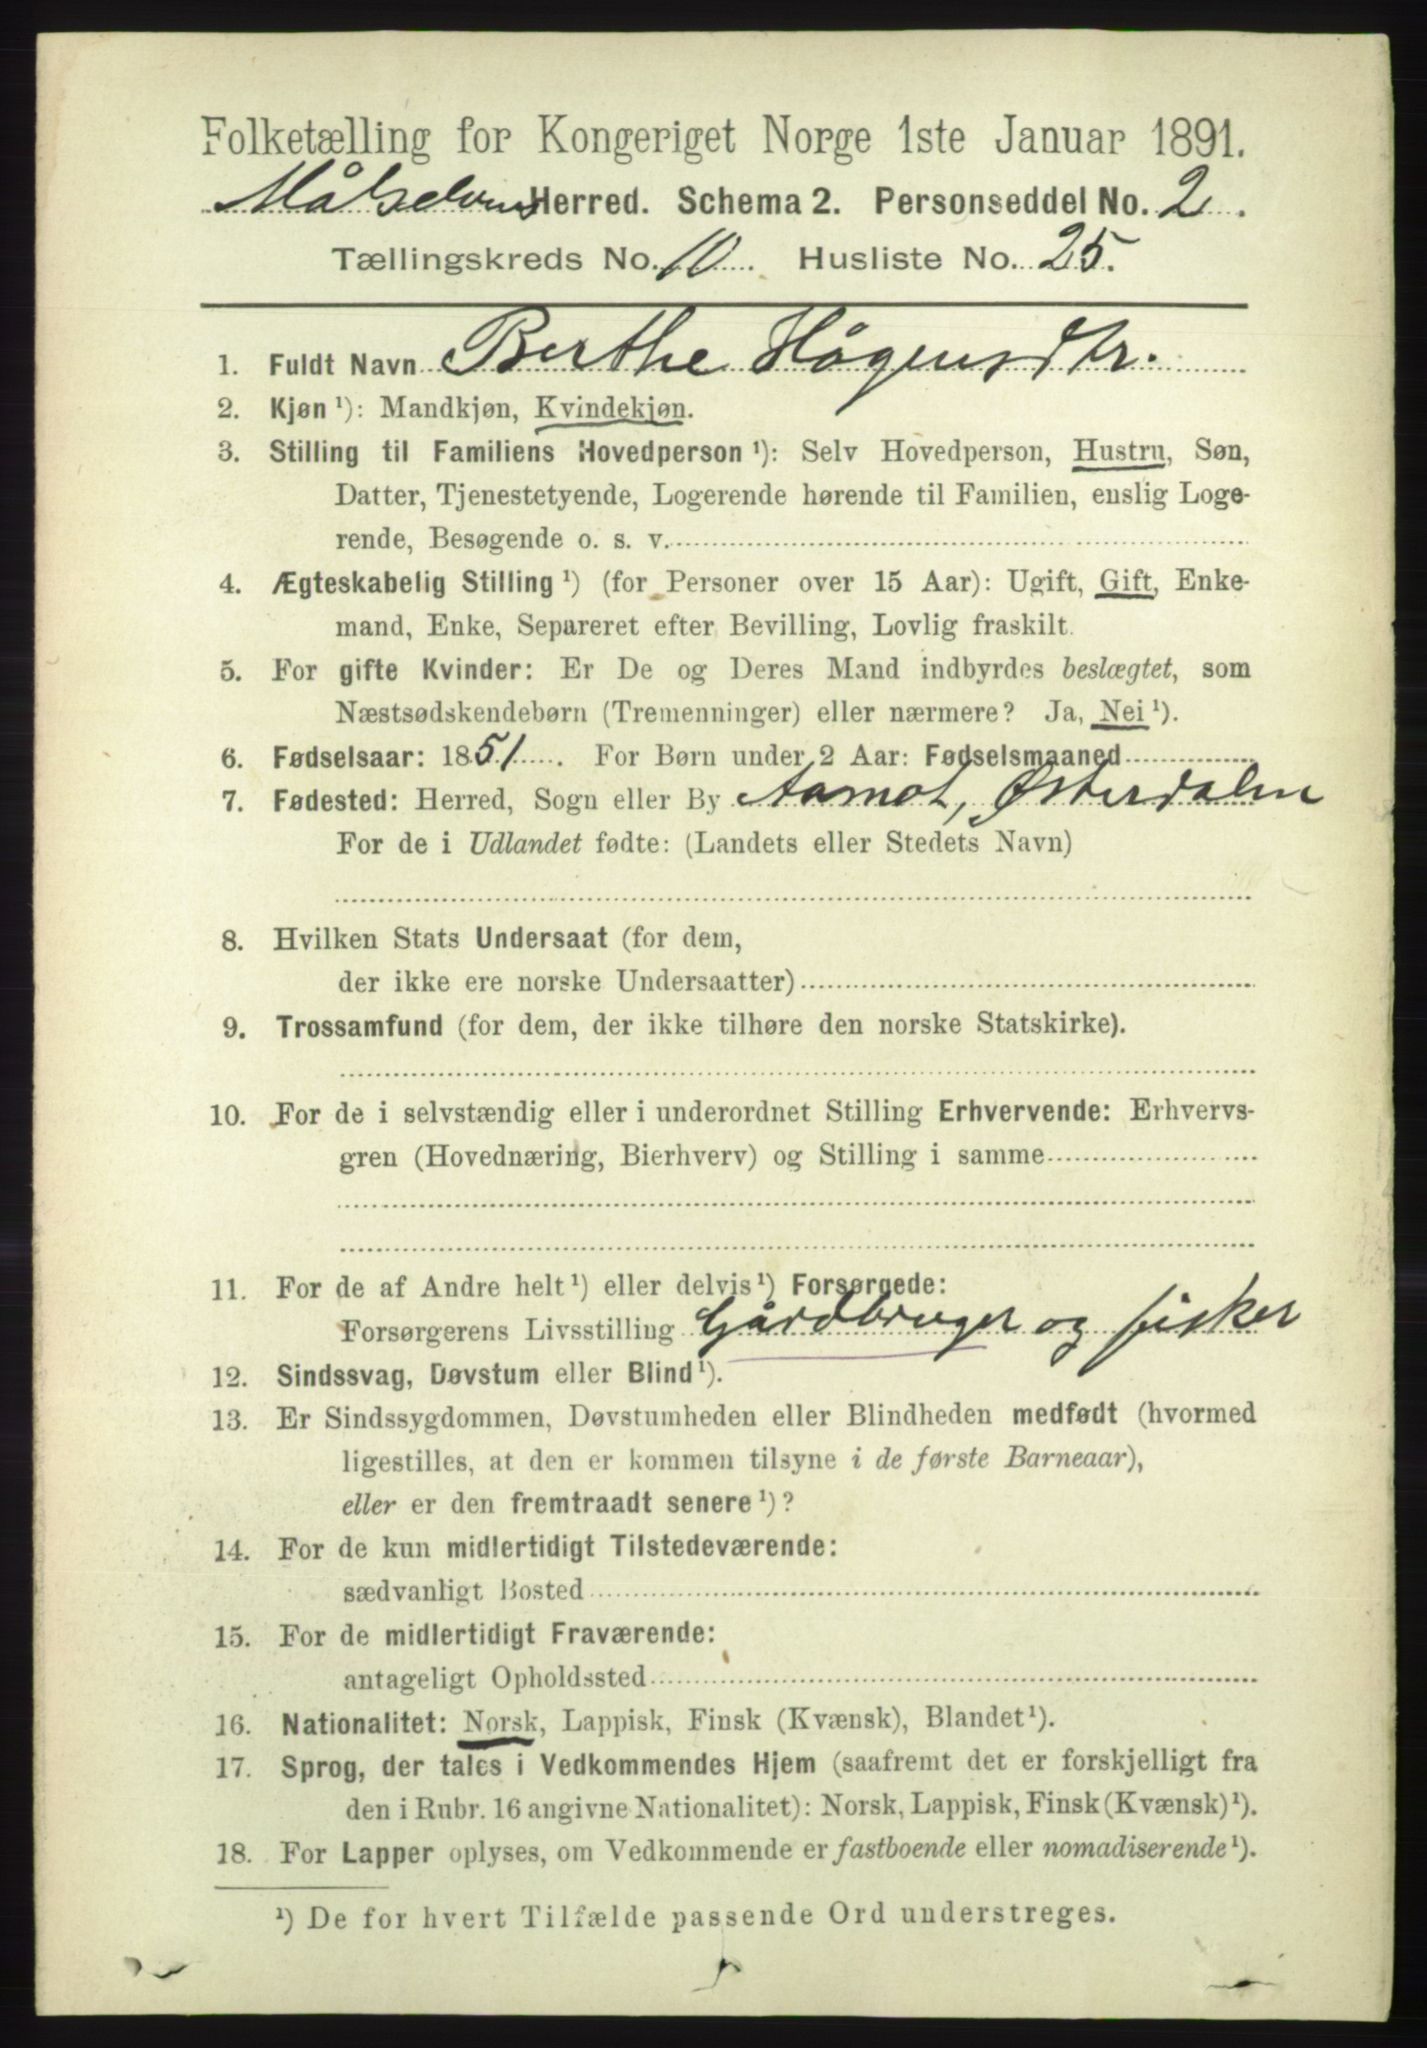 Folketælling for Kongeriget Norge 1ste Januar 1891.
Målselvens Herred. Schema 2. Personseddel No. 2.
Tællingskreds No. 10. Husliste No. 25.
1. Fuldt Navn Berthe Hågensdtr.
2. Kjøn ¹): Mandkjøn, Kvindekjøn.
3. Stilling til Familiens Hovedperson ¹): Selv Hovedperson, Hustru, Søn,
Datter, Tjenestetyende, Logerende hørende til Familien, enslig Loge-
rende, Besøgende o. s. v.
4. Ægteskabelig Stilling ¹) (for Personer over 15 Aar): Ugift, Gift, Enke-
mand, Enke, Separeret efter Bevilling, Lovlig fraskilt.
5. For gifte Kvinder: Er De og Deres Mand indbyrdes beslægtet, som
Næstsødskendebørn (Tremenninger) eller nærmere? Ja, Nei ¹).
6. Fødselsaar: 1851. For Børn under 2 Aar: Fødselsmaaned
7. Fødested: Herred, Sogn eller By Aamot, Østerdalen
For de i Udlandet fødte: (Landets eller Stedets Navn)
8. Hvilken Stats Undersaat (for dem,
der ikke ere norske Undersaatter)
9. Trossamfund (for dem, der ikke tilhøre den norske Statskirke).
10. For de i selvstændig eller i underordnet Stilling Erhvervende: Erhvervs-
gren (Hovednæring, Bierhverv) og Stilling i samme
11. For de af Andre helt ¹) eller delvis ¹) Forsørgede:
Forsørgerens Livsstilling Gårdbruger og fisker
12. Sindssvag, Døvstum eller Blind ¹).
13. Er Sindssygdommen, Døvstumheden eller Blindheden medfødt (hvormed
ligestilles, at den er kommen tilsyne i de første Barneaar),
eller er den fremtraadt senere ¹)?
14. For de kun midlertidigt Tilstedeværende:
sædvanligt Bosted
15. For de midlertidigt Fraværende:
antageligt Opholdssted
16. Nationalitet: Norsk, Lappisk, Finsk (Kvænsk), Blandet ¹).
17. Sprog, der tales i Vedkommendes Hjem (saafremt det er forskjelligt fra
den i Rubr. 16 angivne Nationalitet): Norsk, Lappisk, Finsk (Kvænsk) ¹).
18. For Lapper oplyses, om Vedkommende er fastboende eller nomadiserende ¹).
¹) De for hvert Tilfælde passende Ord understreges.